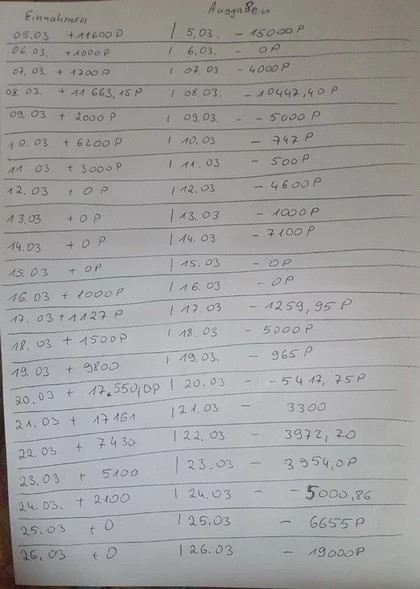 Einnahmen Ausgaben
05.03 +11600P | 5.03. - 15000P
06.03 +1000P | 6.03. - 0P
07.03 +1700P | 07.03 - 4000P
08.03. + 11663,15P | 08.03. - 10447,40P
09.03 + 2000P | 09.03. - - 5000P
10.03 + 6200P | 10.03 - 747P
11.03 + 3000P | 11.03 - 500P
12.03 + 0P | 12.03 - 4600P
13.03 + 0P | 13.03 - 1000P
14.03 + 0P | 14.03 - 7100P
15.03 + 0P | 15.03 - 0P
16.03 + 1000P | 16.03 - 0P
17.03 + 1127P | 17.03 - 1259,95P
18.03 + 1500P | 18.03 - 5000P
19.03 + 9800 | 19.03. - 965P
20.03 + 17.550,0P | 20.03 - - 5417,75P
21.03 + 17161 | 21.03 - 3300
22.03 + 7430 | 22.03 - 3972,70
23.03 + 5100 | 23.03 - 3954,0P
24.03. + 2100 | 24.03 - - 5000,86
25.03 + 0 | 25.03 - 6655P
26.03 + 0 | 26.03 - 19000P